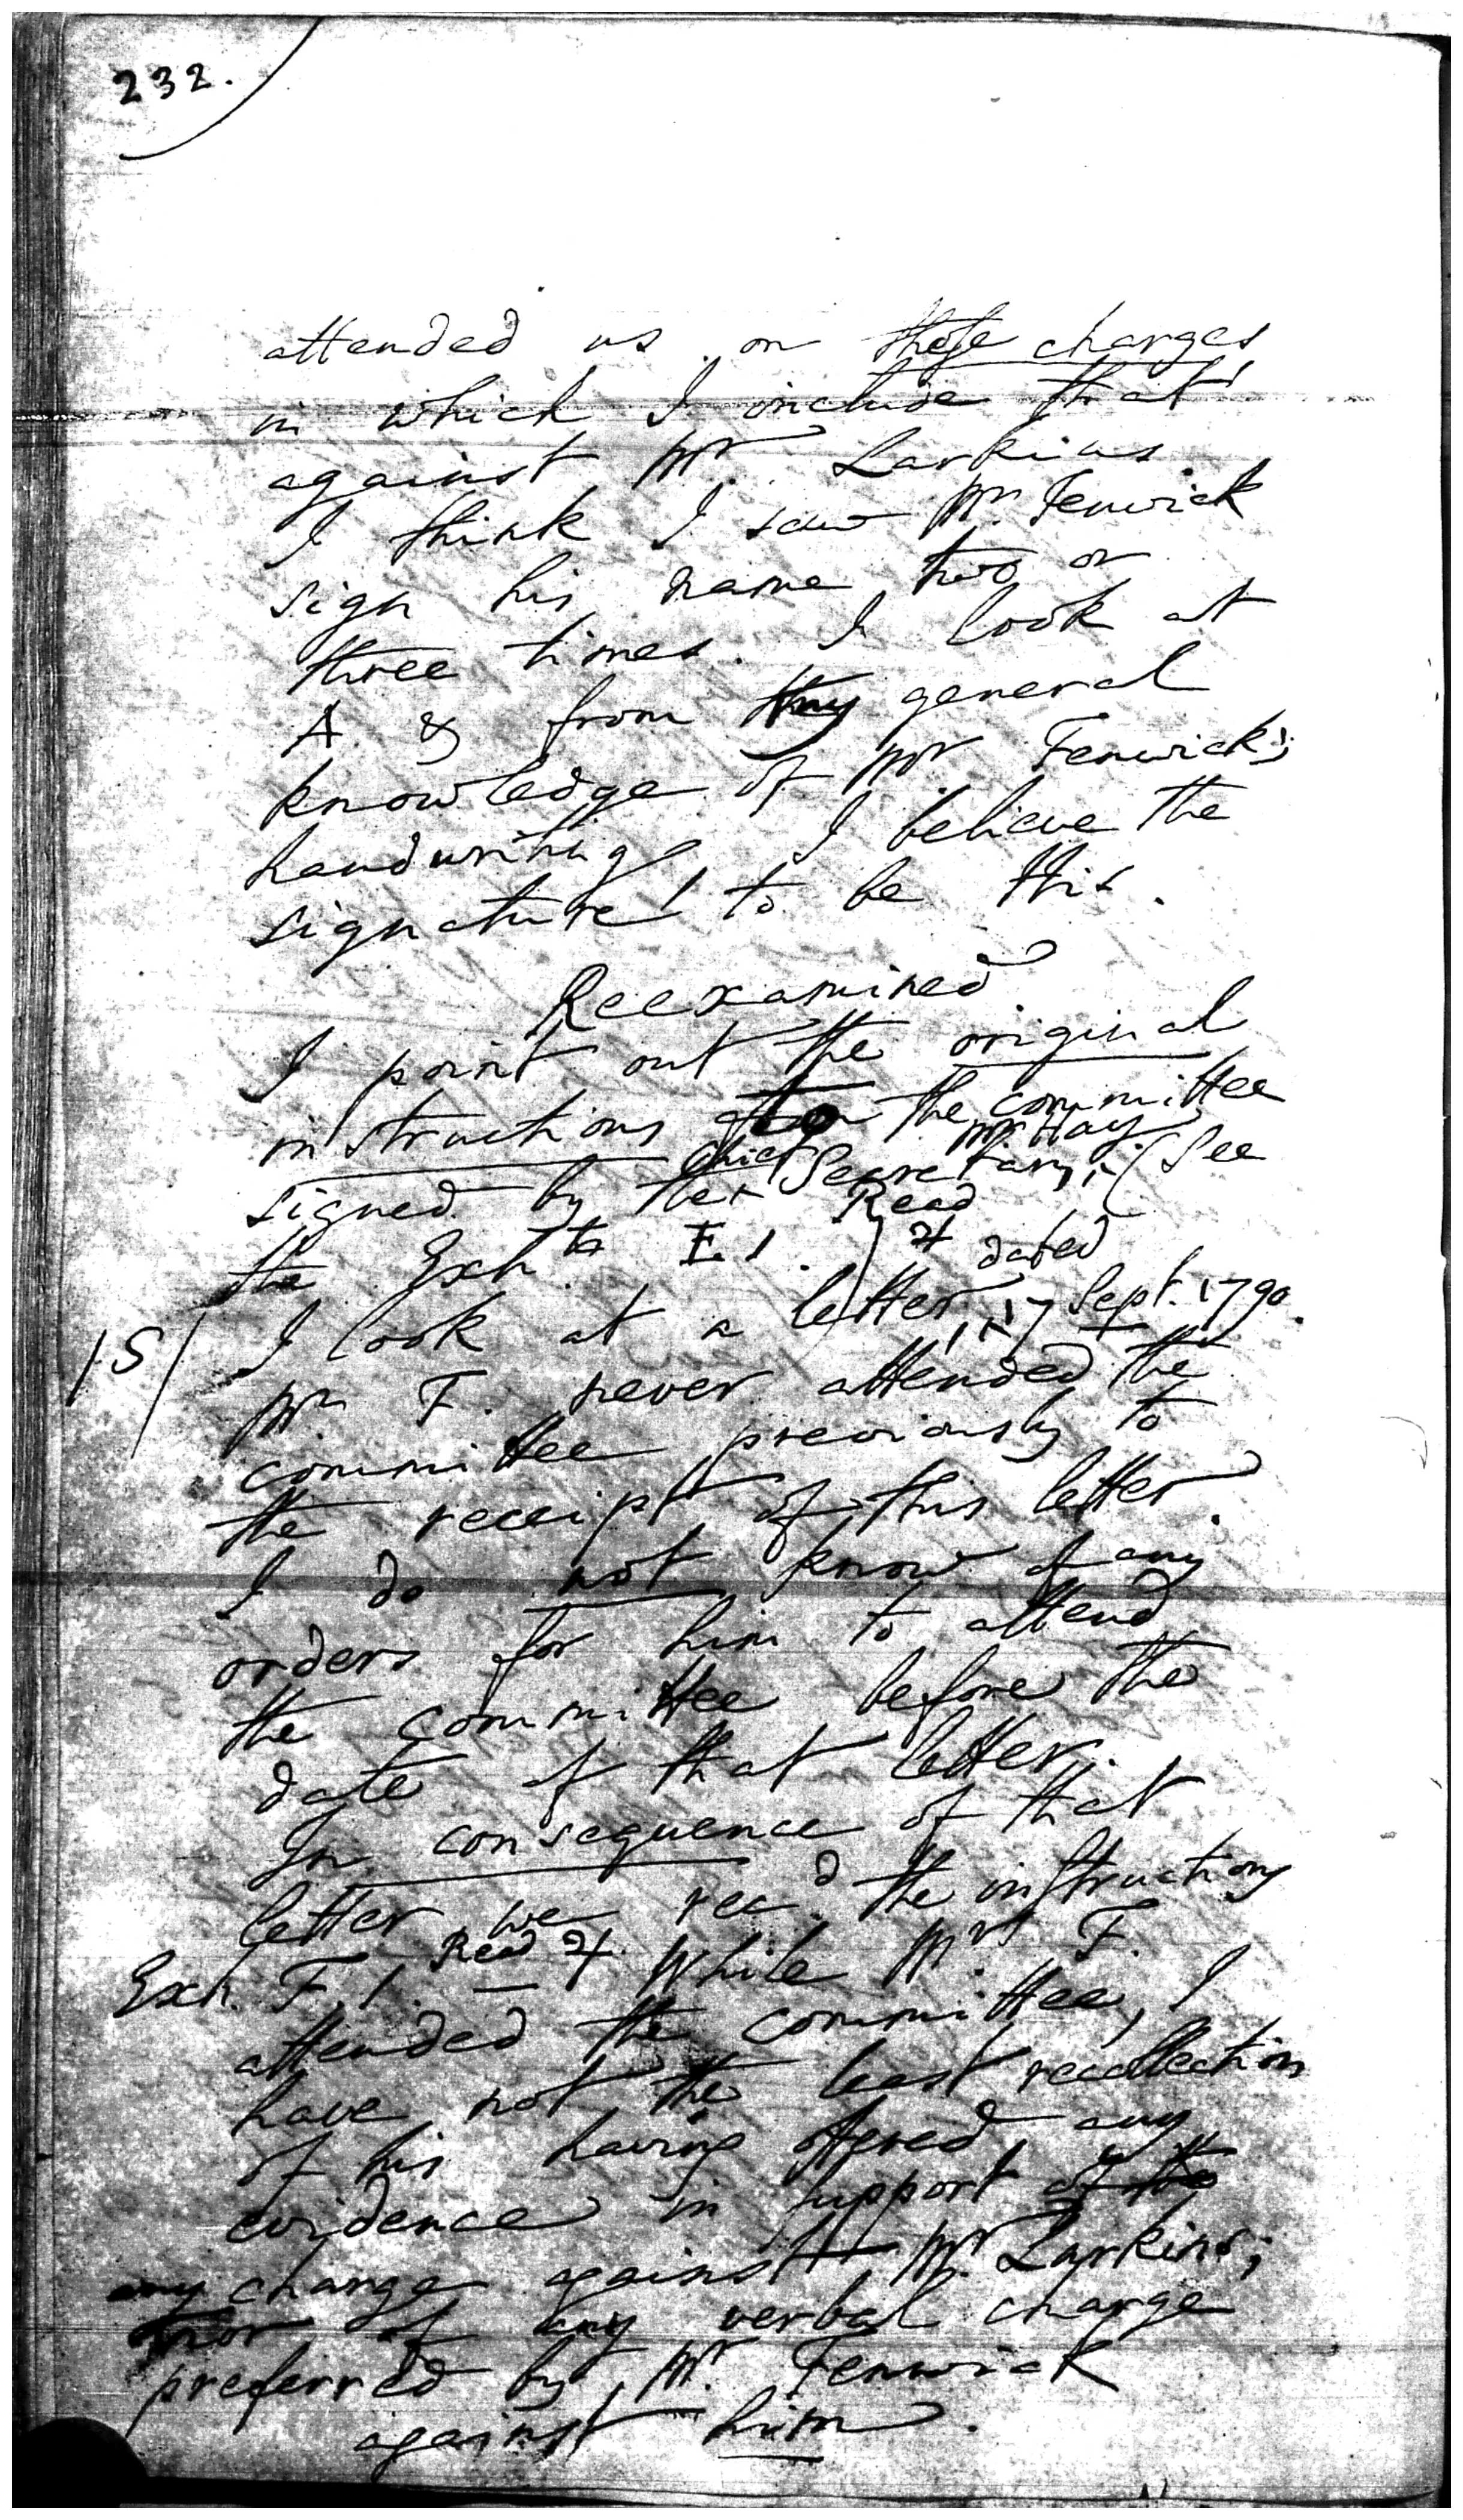 232.
attended us on those charges,
in which I include that
against Mr. Larkins.
I think I saw Mr. Fenwick
sign his name two or
three times. I look at
A & from my general
knowledge of Mr. Fenwick's
handwriting, I believe the
signature to be his.
Reexamined
I point out the original
instructions to the committee
Mr. Hay
signed by the chief Secretary, (See
Read
the Exh.ts E. 1.)
dated
/S/ I look at a letter, 17 Sept. 1790.
Mr. F. never attended the
committee previously to
the receipt of this letter.
I do not know of any
orders for him to attend
the committee before the
date of that letter.
In consequence of that
letter we rec.d the instructions
Read
Exh. F. 1. — While Mr. F.
attended the committee, I
have not the least recollection
of his having offered any
evidence in support of the
any charge against Mr. Larkins;
nor of any verbal charge
preferred by Mr. Fenwick
against him.